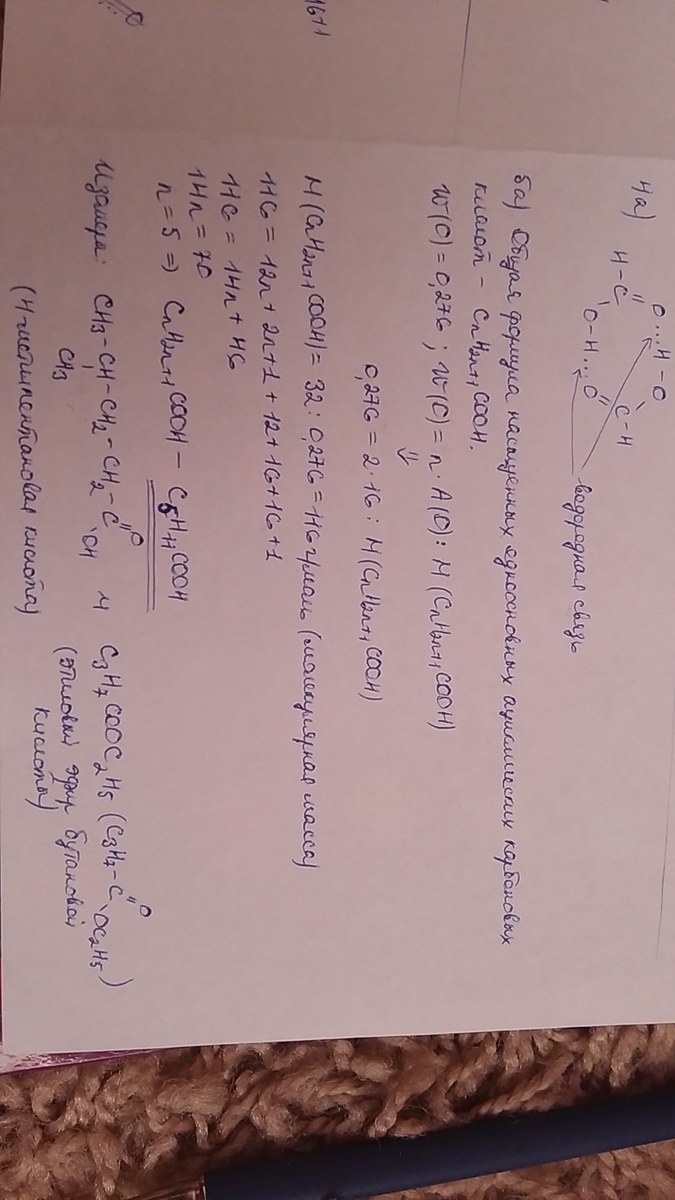 16+1
4а)
O...H-O
H-C C-H
O-H...O
водородная связь
5а) Общая формула насыщенных одноосновных ациклических карбоновых
кислот - CnH2n+1COOH.
W(O) = 0,276 ; W(O) = n · A(O) : M(CnH2n+1COOH)
⇓
0,276 = 2·16 : M(CnH2n+1COOH)
M(CnH2n+1COOH) = 32 : 0,276 = 116 г/моль (молекулярная масса)
116 = 12n + 2n+1 + 12 + 16 + 16 + 1
116 = 14n + 46
14n = 70
n = 5 ⇒ CnH2n+1COOH - C5H11COOH
Изомеры: CH3-CH-CH2-CH2-C=O и C3H7COOC2H5 (C3H7-C=O )
CH3 OH OC2H5
(4-метилпентановая кислота) (этиловый эфир бутановой
кислоты)